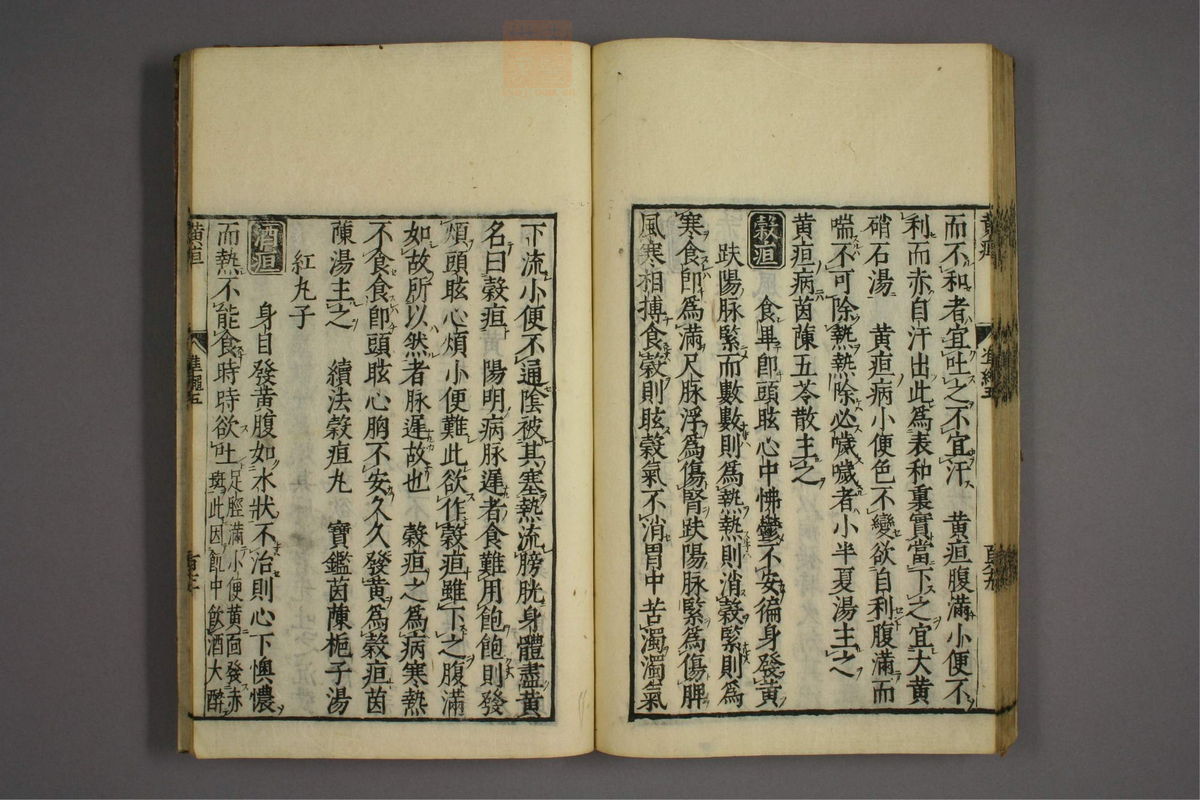 而不和者宜吐之不宜汗　黄疸腹滿小便不
利而赤自汗出此爲表和裏實當下之宜大黄
硝石湯　黄疸病小便色不變欲自利腹滿而
喘不可除熱熱除必噦噦者小半夏湯主之
黄疸病茵蔯五苓散主之
穀疸　食畢即頭眩心中怫鬱不安徧身發黄
趺陽脉緊而數數則爲熱熱則消穀緊則爲
寒食即爲滿尺脉浮爲傷腎趺陽脉緊爲傷脾
風寒相搏食穀則眩穀氣不消胃中苦濁濁氣
下流小便不通陰被其塞熱流膀胱身體盡黄
名曰穀疸　陽明病脉遲者食難用飽飽則發
煩頭眩心煩小便難此欲作穀疸雖下之腹滿
如故所以然者脉遲故也　穀疸之爲病寒熱
不食食即頭眩心胸不安久久發黄爲穀疸茵
蔯湯主之　續法穀疸丸　寶鑑茵蔯梔子湯
紅丸子
酒疸　身目發黄腹如水狀不治則心下懊憹
而熱不能食時時欲吐足脛滿小便黄面發赤
斑此因飢中飲酒大醉
黄疸
準繩五